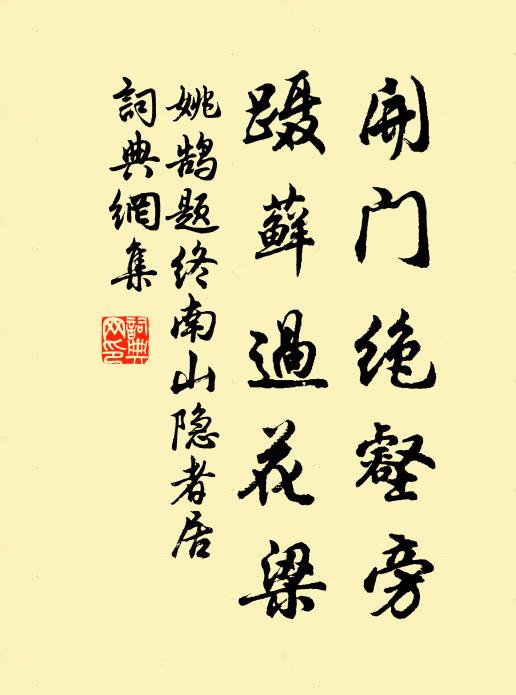 开门绝壑旁
蹑藓過花梁
姚鹄题终南山隐者居
詞典網集
詞典网印